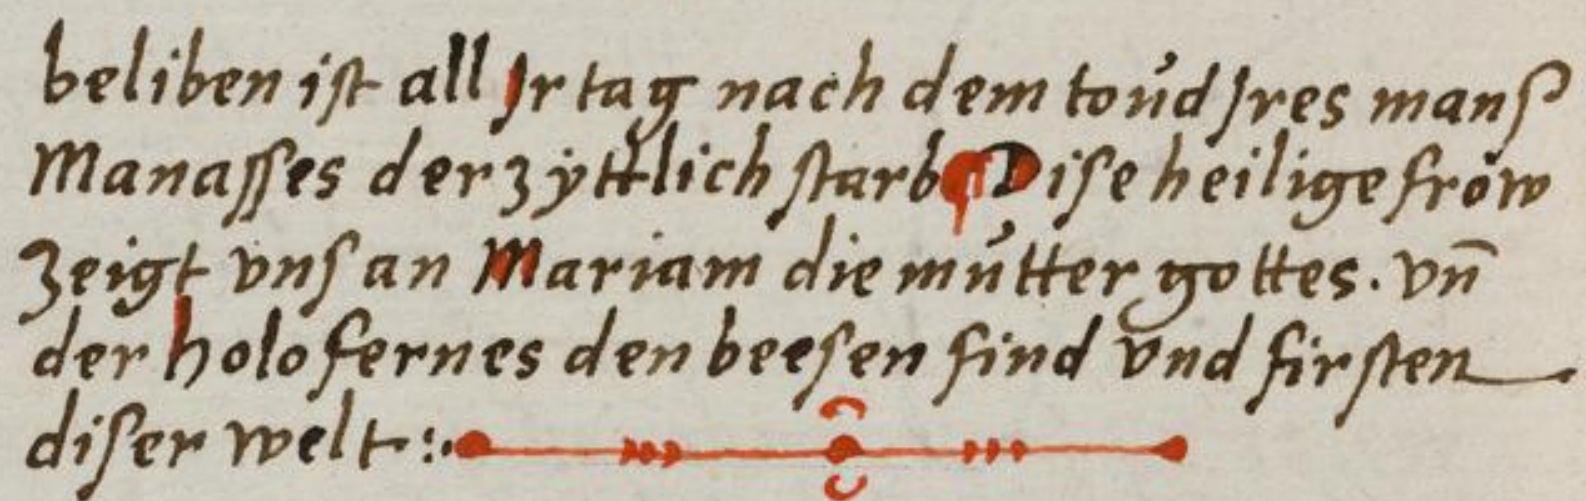 beliben ist all Jr tag nach dem toůd Jres manß
Manasses der zÿttlich starb Dise heilige fröw
Zeigt vnſ an Mariam die můtter gottes. vn̄
der holofernes den beesen find vnd firsten
diser welt :.